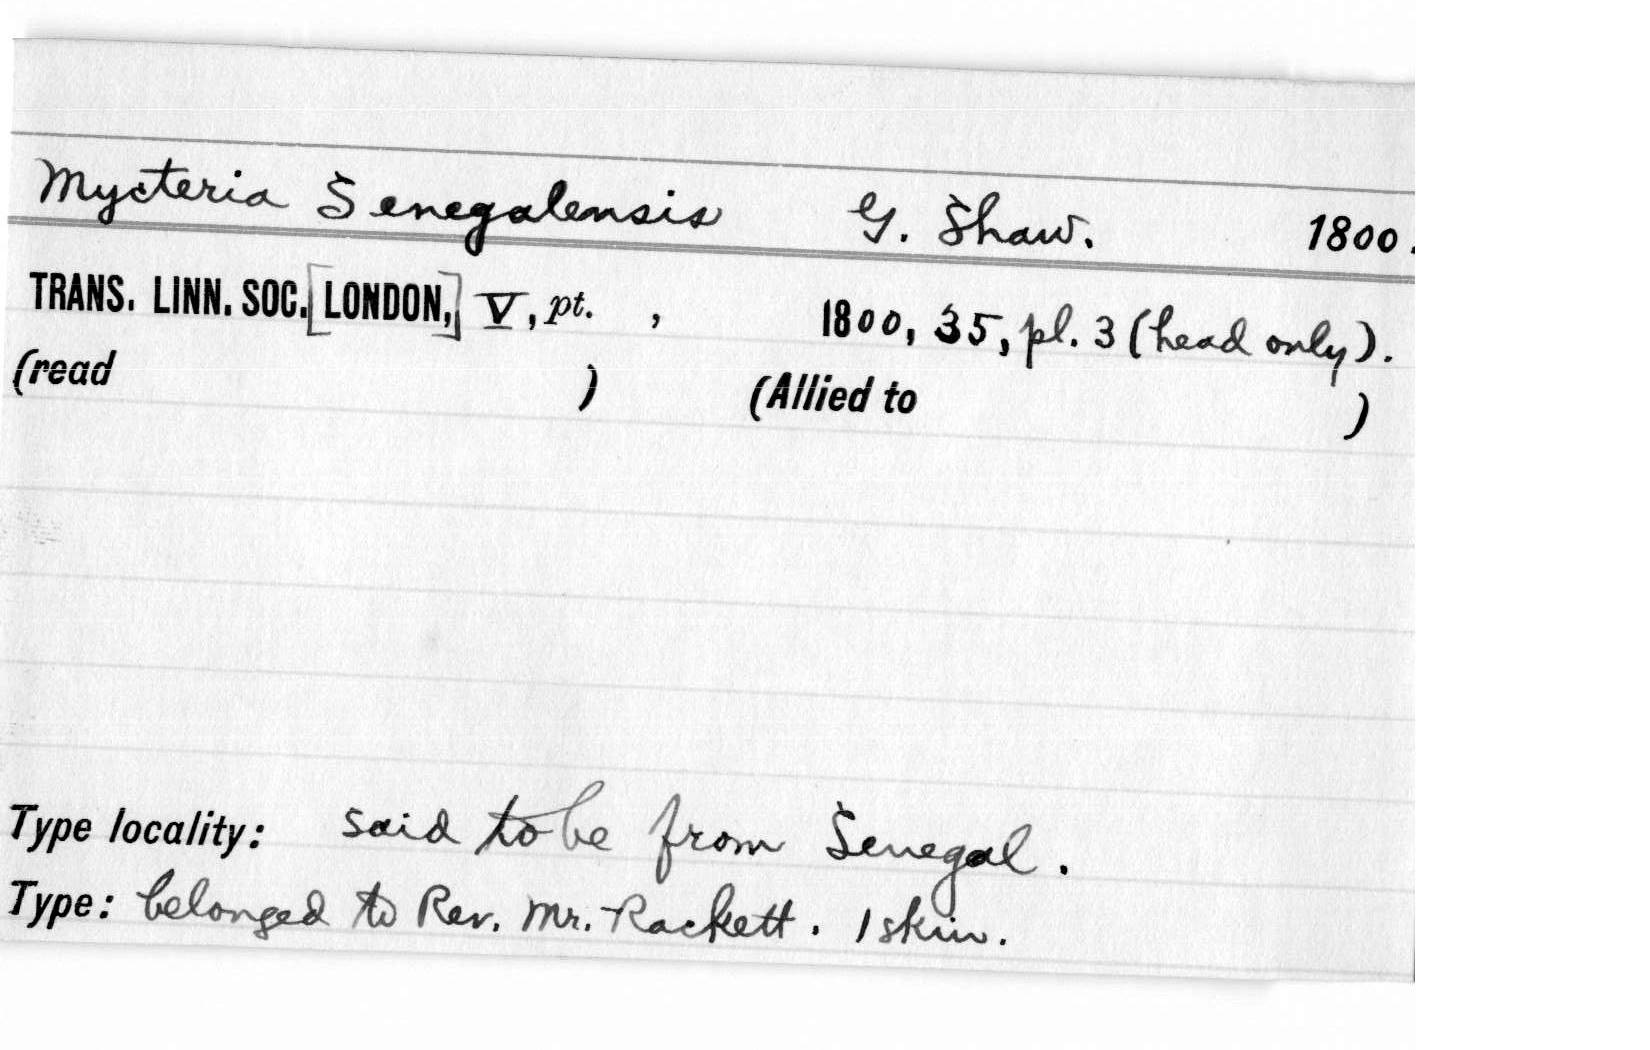 Mycteria Senegalensis G. Shaw. 1800.
TRANS. LINN. SOC. [LONDON,] V, pt. , 1800, 35, pl. 3 (head only).
(read ) (Allied to )
Type locality: said to be from Senegal.
Type: belonged to Rev. Mr. Rackett. 1 skin.